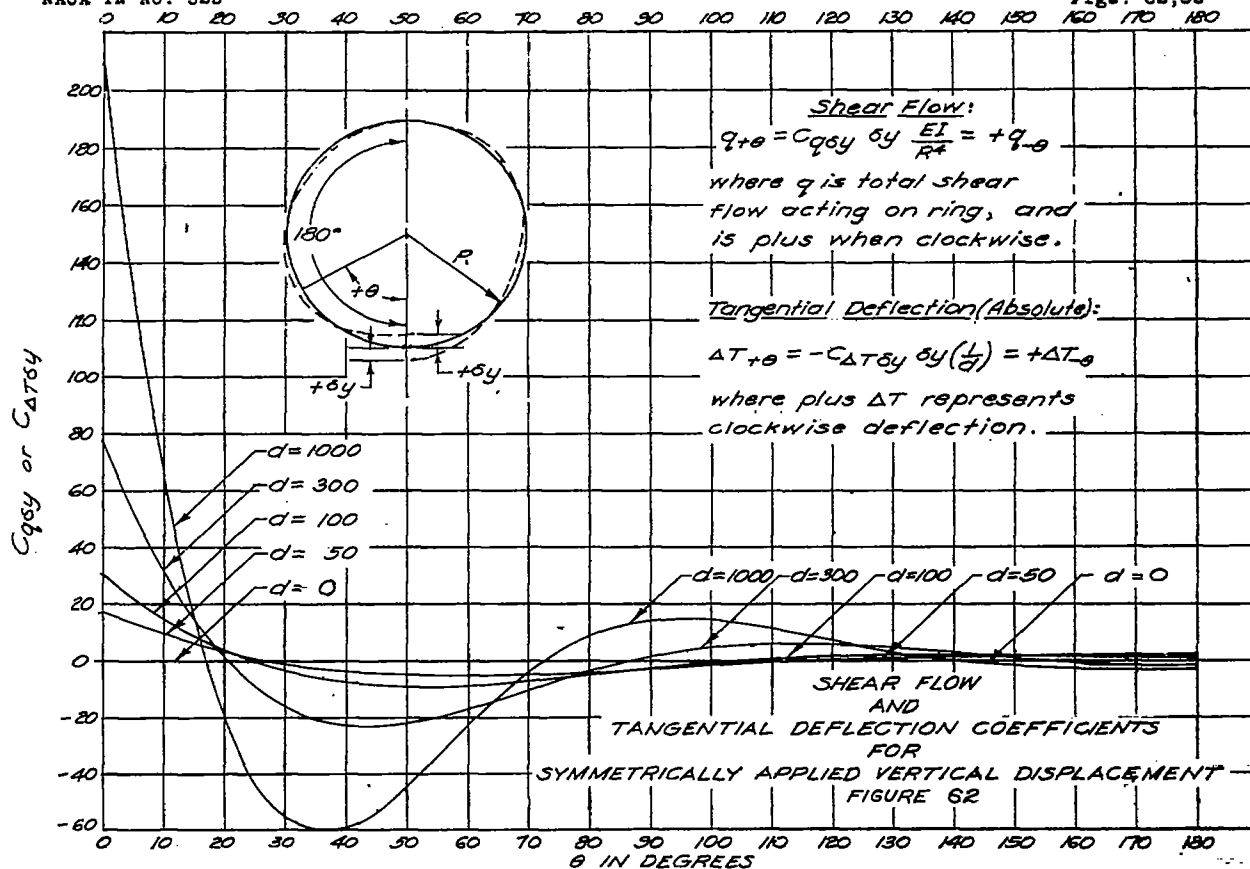 NACA TN No. 929
Figs. 62,63
0 10 20 30 40 50 60 70 80 90 100 110 120 130 140 150 160 170 180
200
180
160
140
120
100
80
60
40
20
0
-20
-40
-60
C_qδy or C_ΔTδy
180°
+θ
R
+δy
+δy
Shear Flow:
q_+θ = C_qδy δy EI/R⁴ = +q_-θ
where q is total shear
flow acting on ring, and
is plus when clockwise.
Tangential Deflection (Absolute):
ΔT_+θ = -C_ΔTδy δy (1/d) = +ΔT_-θ
where plus ΔT represents
clockwise deflection.
d=1000
d=300
d=100
d=50
d=0
d=1000 d=300 d=100 d=50 d=0
SHEAR FLOW
AND
TANGENTIAL DEFLECTION COEFFICIENTS
FOR
SYMMETRICALLY APPLIED VERTICAL DISPLACEMENT
FIGURE 62
0 10 20 30 40 50 60 70 80 90 100 110 120 130 140 150 160 170 180
θ IN DEGREES